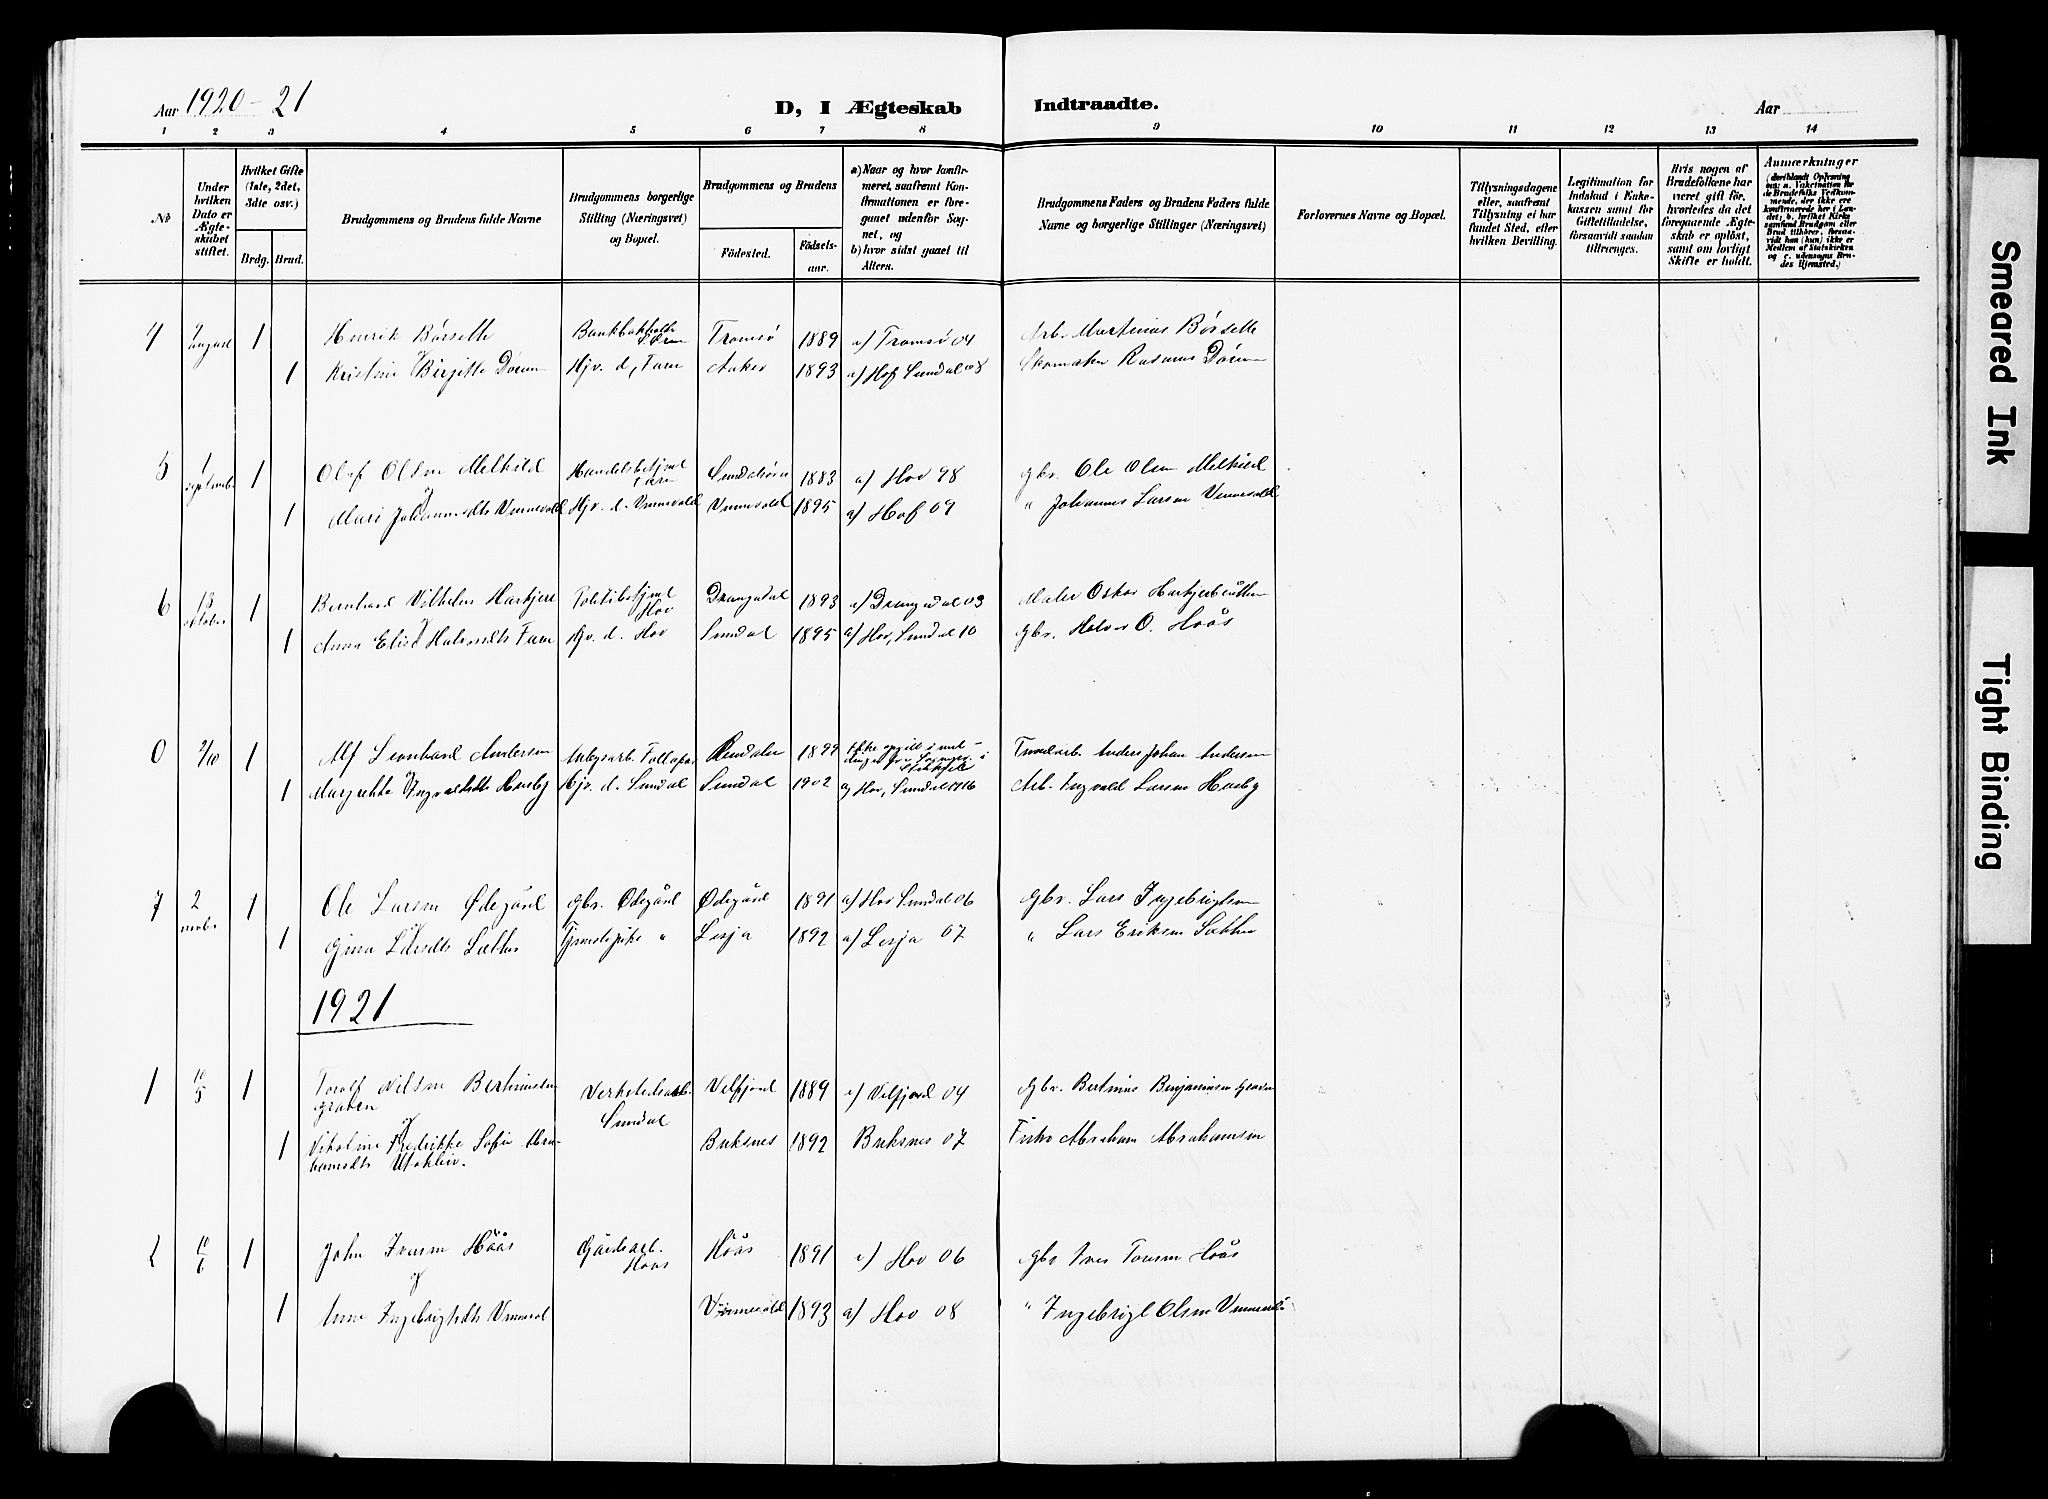 Aar 1920-21
D, I Ægteskab Indtraadte.
Aar
1 2 3 4 5 6 7 8 9 10 11 12 13 14
No
Under hvilken Dato er Ægteskabet stiftet.
Hvilket Gifte (1ste, 2det, 3die osv.)
Brdg. Brud.
Brudgommens og Brudens fulde Navne
Brudgommens borgerlige Stilling (Næringsvei) og Bopæl.
Brudgommens og Brudens
Födested.
Födselsaar.
a) Naar og hvor konfirmeret, saafremt Konfirmationen er foregaaet udenfor Sognet, og
b) hvor sidst gaaet til Alters.
Brudgommens Faders og Brudens Faders fulde Navne og borgerlige Stillinger (Næringsvei)
Forlovernes Navne og Bopæl.
Tillysningsdagene eller, saafremt Tillysning ei har fundet Sted, efter hvilken Bevilling.
Legitimation for Indskud i Enkekassen samt for Giftetilladelse, forsaavidt saadan tiltrænges.
Hvis nogen af Brudefolkene har været gift før, hvorledes da det foregaaende Ægteskab er opløst, samt om lovligt Skifte er holdt.
Anmærkninger (deriblandt Oplysning om: a. Vakcination for de Brudefolks Vedkommende, der ikke ere konfirmerede her i Landet; b. hvilket Kirkesamfund Brudgom eller Brud tilhører, forsaavidt han (hun) ikke er Medlem af Statskirken og c. udensogns Brudes Hjemsted.)
4 7 august 1 Henrik Børseth Tromsø 1889 a) Tromsø 04 Arb. Martinus Børseth
og
1 Kristine Birgitte Hjv. d, Furu Anker 1893 a) Hof Sundal 08 Skomaker Rasmus
5 1 september 1 Olaf Olsen Melkild Handelsbetjent Sundalsøren 1883 a) Hov 98 Gbr. Ole Olsen Melkild
og
1 Mari Johannesdtr Vinnevold Hjv. d. Vinnevold Vinnevold 1895 a) Hof 09 " Johannes Larsen Vinnevold
6 13 oktober 1 Bernhard Vilhelm Politibetjent Hov Drangedal 1893 a) Drangedal 03 Maler Oskar
og
1 Anna Elise Halvorsdtr Hjv. d. Hov Sundal 1895 a) Hov, Sundal 10 Gbr. Halvor O. Hoås
0 2/10 1 Alf Leonhard Andersen Rendalen 1899 Anders Johan Andersen
og
1 Ingvaldsdtr Husby Hjv. d. Sundal Sundal 1902 a) Hov, Sundal 1916 Arb. Ingvald Larsen Husby
7 2 novbr 1 Ole Larsen Ødegård Gbr. Ødegård Ødegård 1891 a) Hov Sundal 06 Gbr. Lars Ingebrigtsen
og
1 Gjina Larsdtr Sætter Tjenestepike " Lesja 1892 a) Lesja 07 " Lars Eriksen Sætter
1921
1 10/5 1 Toralf Nilsen Bertinussen Graven Verkstedsarb. Sundal Velfjord 1889 a) Velfjord 04 Gbr. Bertinus Benjaminsen Graven
og
1 Nikoline Fredrikke Sofie Abrahamsdtr Utakleiv. Buksnes 1892 Buksnes 07 Fisker Abraham Abrahamsen
2 10/6 1 John Iversen Hoås Gårdsarb. Hoås Hoås 1891 a) Hov 06 Gbr Iver Toresen Hoås
og
1 Anne Ingebrigtsdtr Vinnevold Vinnevold 1893 a) Hov 08 " Ingebrigt Olsen Vinnevold
Smeared Ink
Tight Binding